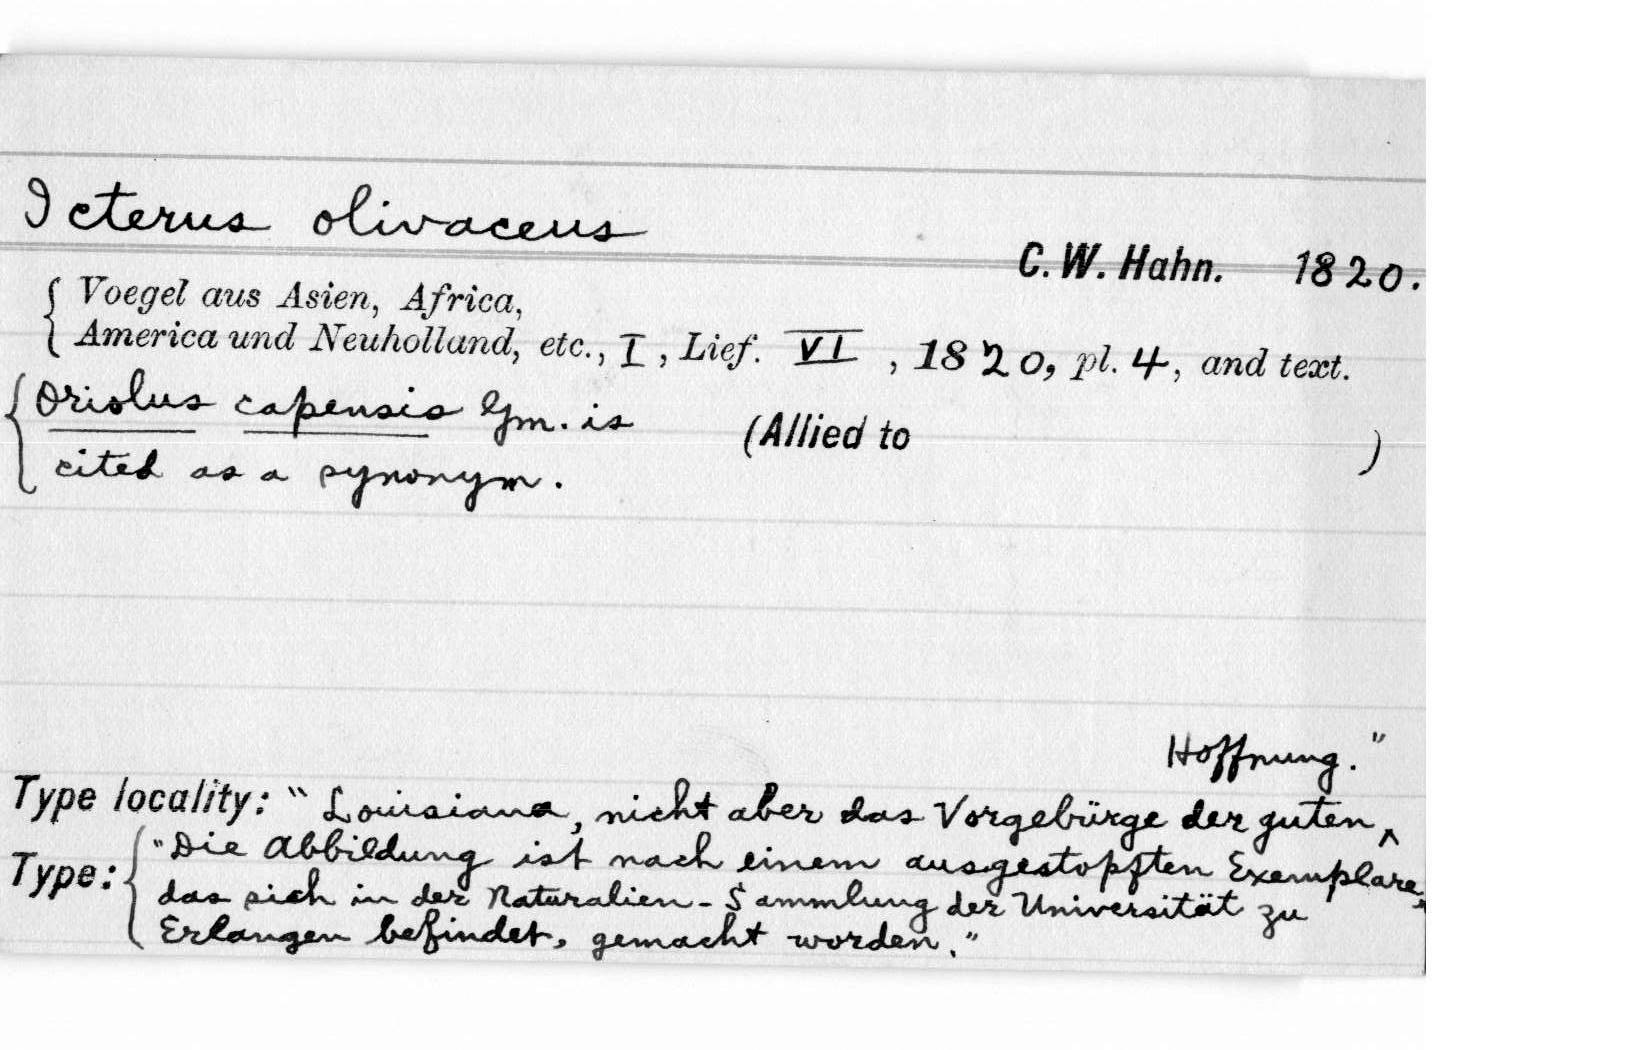 Icterus olivaceus
C. W. Hahn. 1820.
Voegel aus Asien, Africa,
America und Neuholland, etc., I, Lief. VI, 1820, pl. 4, and text.
Oriolus capensis Gm. is
cited as a synonym.
(Allied to )
Type locality: "Louisiana, nicht aber das Vorgebürge der guten ^
Hoffnung."
Type: "Die Abbildung ist nach einem ausgestopften Exemplare,
das sich in der Naturalien-Sammlung der Universität zu
Erlangen befindet, gemacht worden."